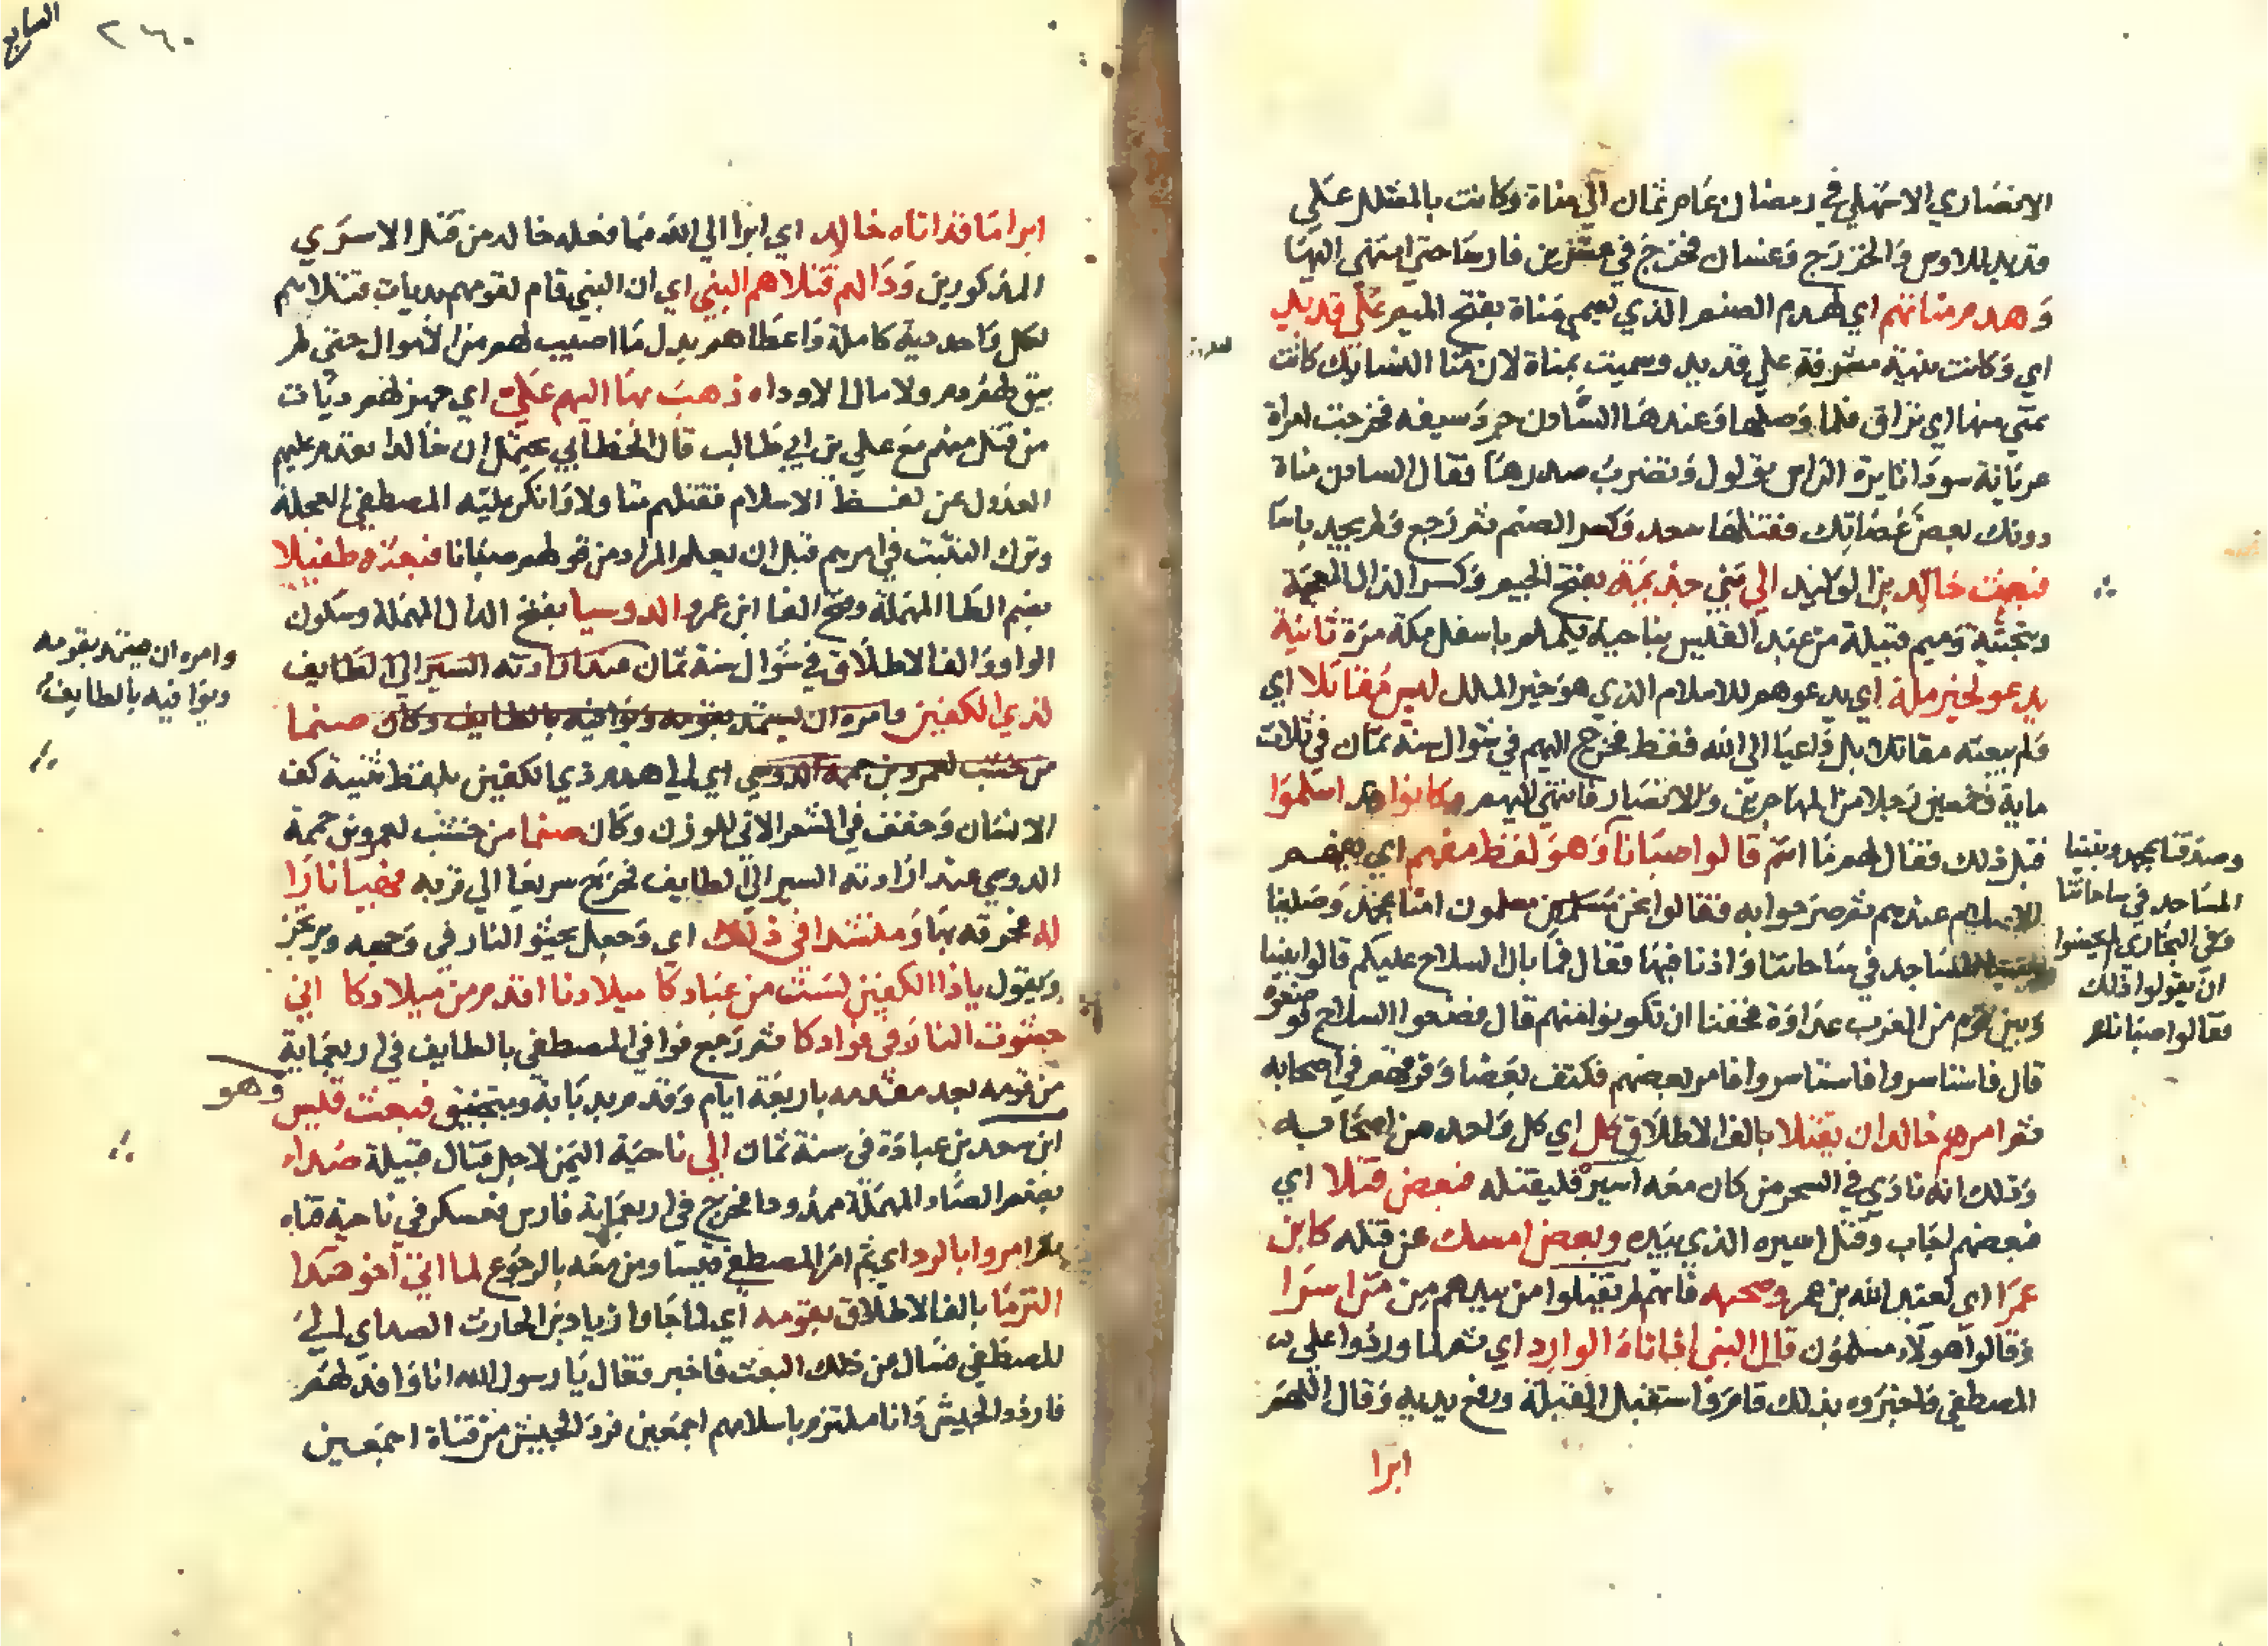 الانصاري الاشهلي في رمضان عام ثمان الي مناة وكانت بالمشلل علي
قديد للاوس والخزرج وغسان فخرج في عشرين فارسا حتي انتهي اليها
وهدم مناتهم اي لهدم الصنم الذي يسمي مناة بفتح الميم علي قديد
اي وكانت مشرفة علي قديد وسميت بمناة لان دما النسائك كانت
تمني منها اي تراق فلما وصلها وعندها السادن جر وسيفه فخرجت امراة
عريانة سودا ثايرة الراس تقول وتضرب صدرها فقال السادن مناة
دونك بعض غضباتك فقتلها سعد وكسر الصنم ثم رجع ولم يجد باسا
فبعث خالد بن الوليد الي بني جذيمة بفتح الجيم وكسر الذال المعجمة
وتحتية وميم قبيلة من عبد القيس بناحية يلملم باسفل مكة مرة ثانية
يدعو لخير ملة اي يدعوهم للاسلام الذي هو خير الملل ليس مقاتلا اي
ولم يبعثه مقاتلا بل داعيا الي الله فقط فخرج اليهم في شوال سنة ثمان في ثلاث
ماية وخمسين رجلا من المهاجرين والانصار فانتهي اليهم وكانوا قد اسلموا
قبل ذلك فقال لهم ما انتم قالوا صبانا وهو لفظ مفهم اي بعضهم
للاسلام عندهم تقرر جوابه فقالوا نحن مسلمون امنا بمحمد وصلينا
المساجد في ساحاتنا واذنا فيها فقال فما بال السلاح عليكم قالوا بيننا
وبين قوم من العرب عداوة فخفنا ان تكونوا منهم قال فضعوا السلاح فوضعوه
قال فاستاسروا فاستاسروا فامر بعضهم فكتف بعضا وفرقهم في اصحابه
ثم امرهم خالد ان يقتلا بالف الاطلاق كل اي كل واحد من اصحابه
وذلك انه نادي في السحر من كان معه اسير فليقتله فبعض قتلا اي
فبعضهم اجاب وقتل اسيره الذي بيده وبعض امسك عن قتله كابن
عمرا اي كعبد الله بن عمر وصحبه فانهم لم يقتلوا من بيدهم من اسرا
وقالوا هولاء مسلمون قال النبي اذ اتاه الوارد اي ثم لما وردوا علي
المصطفي واخبروه بذلك قام واستقبل القبلة ورفع يديه وقال اللهم
ابرا
وصدقنا بمحمد وبنينا
المساجد في ساحاتنا
وفي البخاري لم يحسنوا
ان يقولوا ذلك
فقالوا صبانا
٢٦٠
السابع
ابرا مما قد اتاه خالد اي ابرا الي الله مما فعله خالد من قتل الاسري
المذكورين وودا لهم قتلاهم النبي اي ان النبي قام لقومهم بديات قتلاهم
لكل واحد دية كاملة واعطاهم بدل ما اصيب لهم من الاموال حتي لم
يبق لهم دم ولا مال الا وداه ذهب بها اليهم علي اي جهز لهم ديات
من قتل منهم مع علي بن ابي طالب قال الخطابي يحتمل ان خالدا نقم عليهم
العدول عن لفظ الاسلام فقتلهم متاولا وانكر عليه المصطفي العجلة
وترك التثبت في امرهم قبل ان يعلم المراد من قولهم صبانا فبعثه طفيلا
بضم الطا المهملة وفتح الفا ابن عمرو الدوسيا بفتح الدال المهملة وسكون
الواو والف الاطلاق في شوال سنة ثمان عند ارادته السير الي الطايف
لذي الكفين وامره ان يستمد بقومه ويوافيه بالطايف وكان صنما
من خشب لعمرو بن حممة الدوسي اي لهدم ذي الكفين بلفظ تثنية كف
الانسان وخفف في الشعر الاتي للوزن وكان صنما من خشب لعمرو بن حممة
الدوسي عند ارادته السير الي الطايف فخرج سريعا الي قومه مخبيا نارا
له محرقه بها ومنشدا في ذلك اي وجعل يحثو النار في وجهه ويرتجز
ويقول يا ذا الكفين لست من عبادكا ميلادنا اقدم من ميلادكا اني
حشوت النار في فوادكا ثم رجع فوافي المصطفي بالطايف في اربعماية
من قومه بعد مقدمه باربعة ايام وقدم بدبابة ومنجنيق فبعث قيس وهو
ابن سعد بن عبادة في سنة ثمان الي ناحية اليمن لاجل قتال قبيلة صداء
بضم الصاد المهملة ممدودا فخرج في اربعماية فارس فعسكر في ناحية قناه
ثم امروا بالرد اي ثم امر المصطفي قيسا ومن معه بالرجوع لما اتي اخو صدا
التزما بالف الاطلاق بقومه اي لما جا زياد بن الحارث الصداي الي
المصطفي فسال عن ذلك البعث فاخبر فقال يا رسول الله انا وافدلهم
فاردد الجيش وانا ملتزم باسلامهم اجمعين فرد الجيش من قناة اجمعين
وامره ان يستمد بقومه
ويوافيه بالطايف